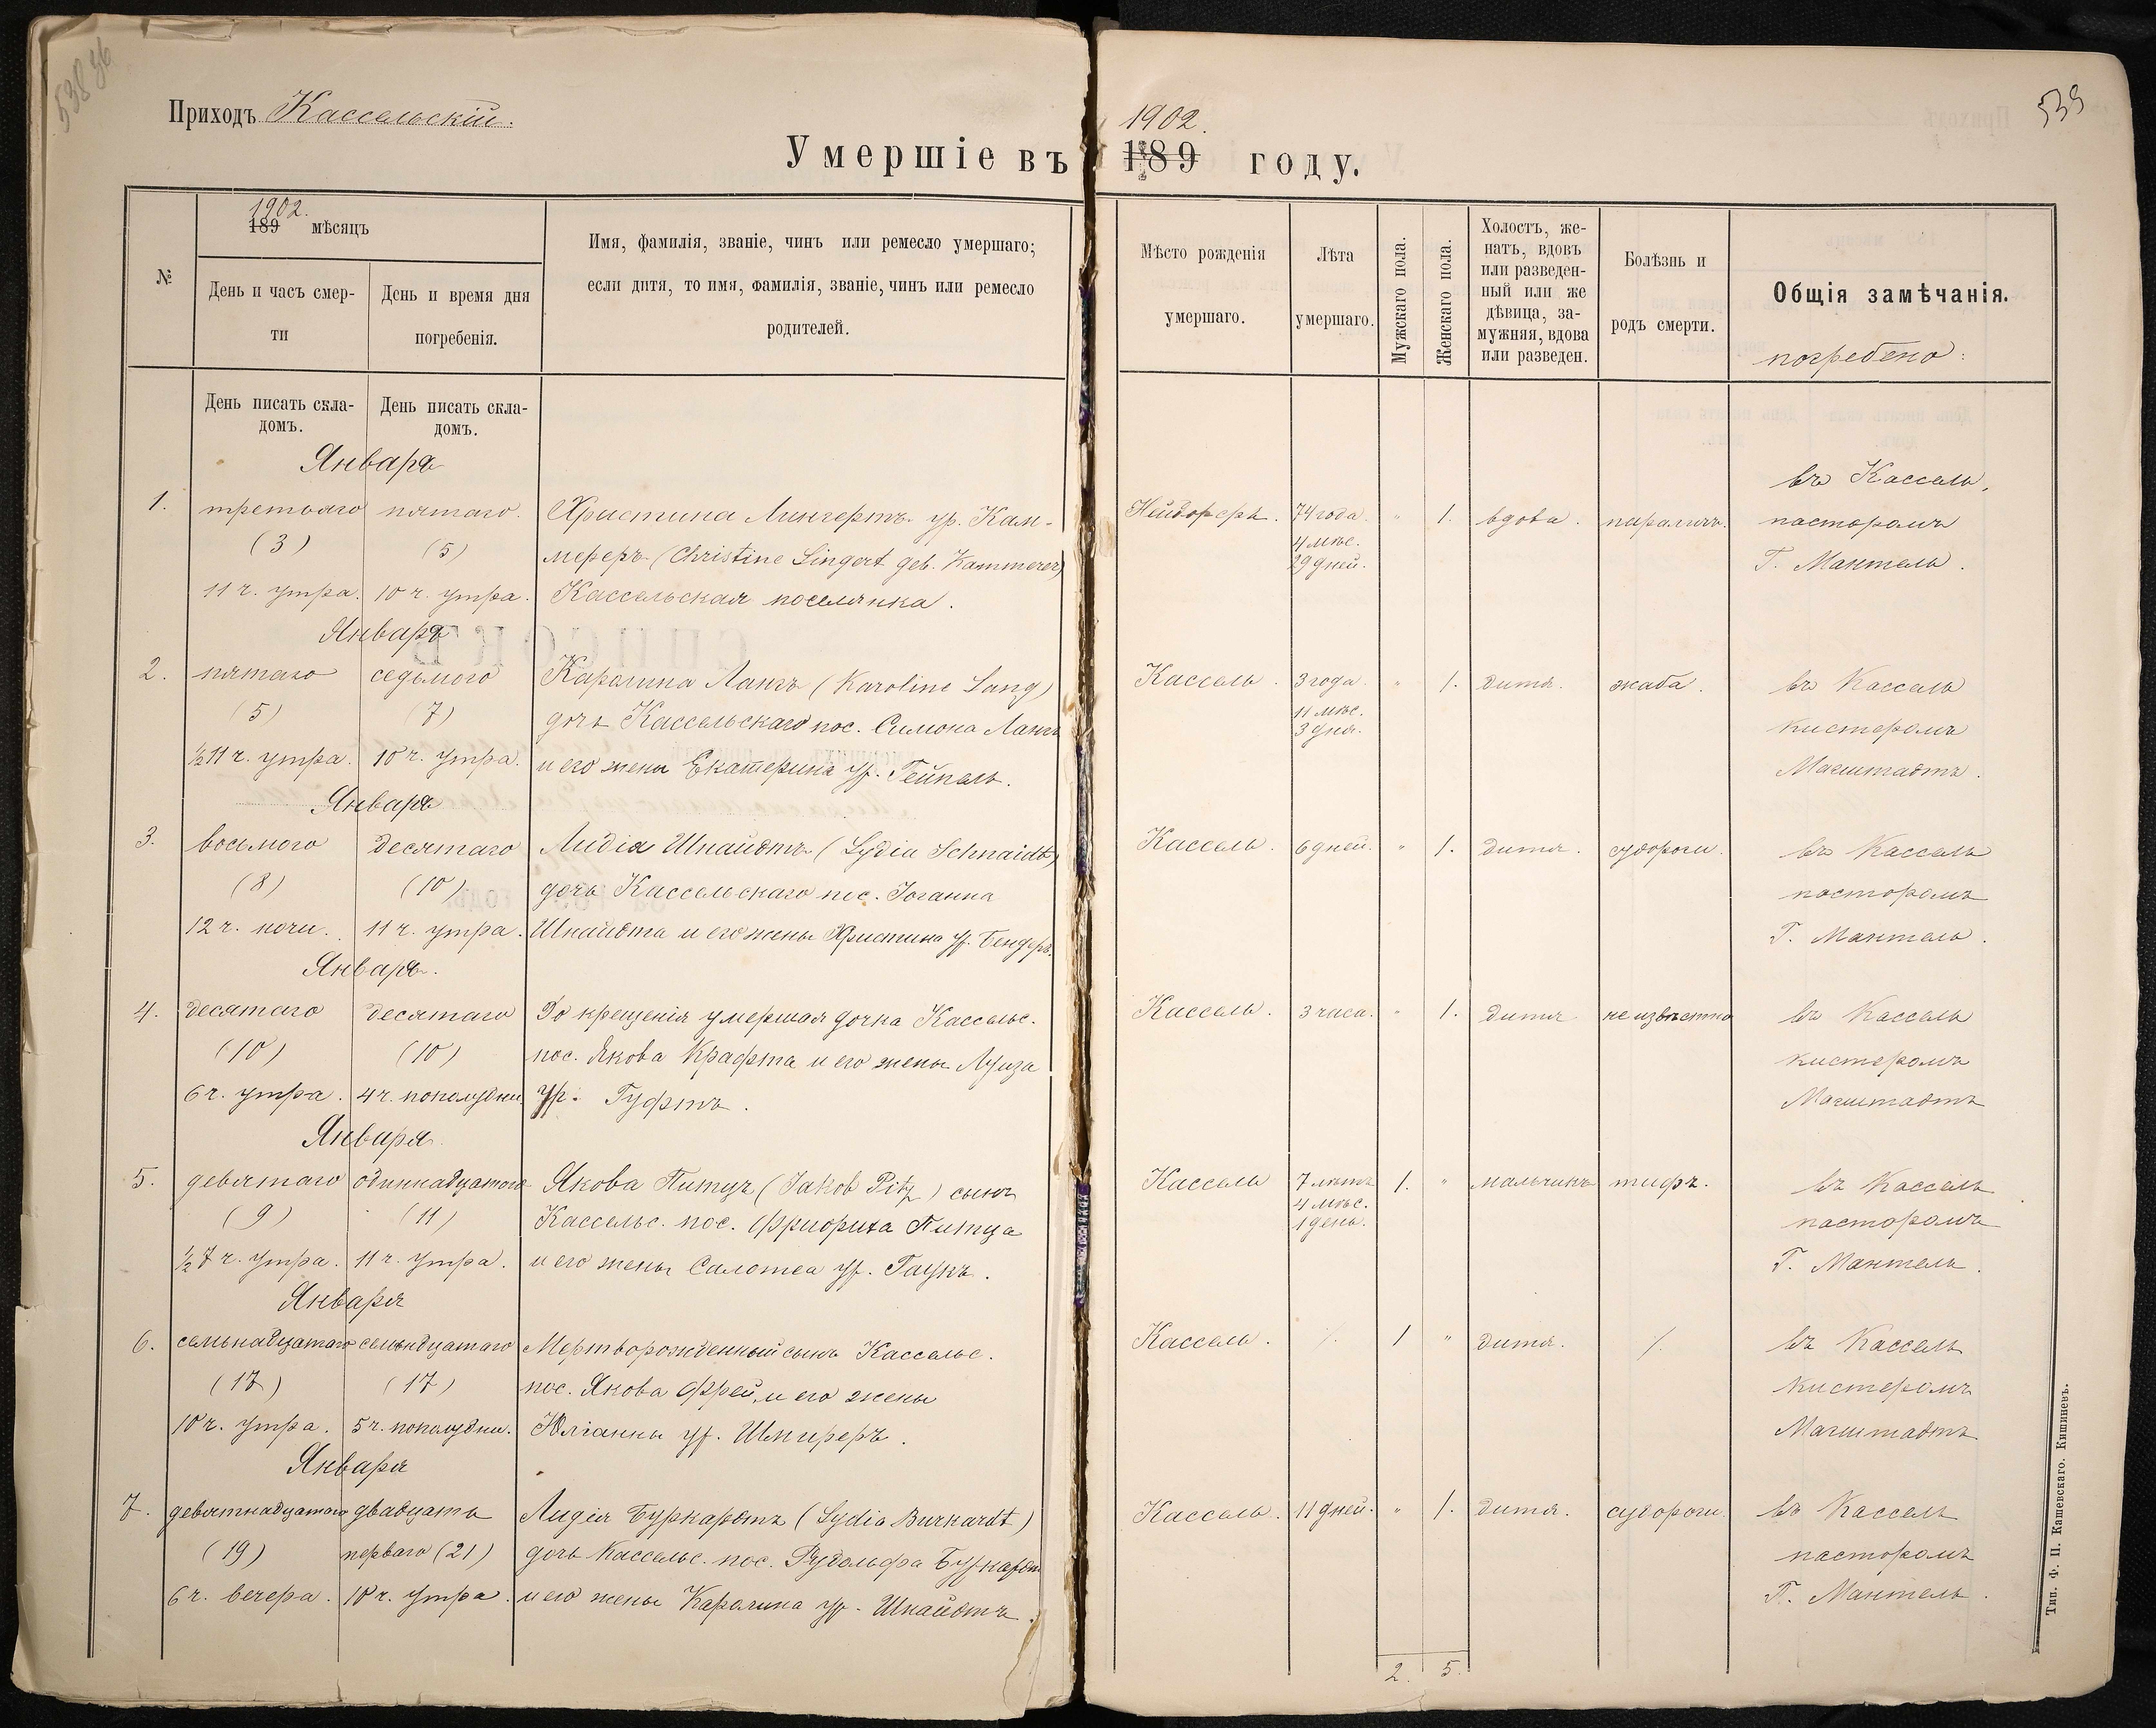 538 об
Приходъ Кассельскій.
Умершіе въ 1902. 189 году.
539
№
1902. 189 мѣсяцъ
День и часъ смерти
День и время дня погребенія.
Имя, фамилія, званіе, чинъ или ремесло умершаго;
если дитя, то имя, фамилія, званіе, чинъ или ремесло
родителей.
Мѣсто рожденія
умершаго.
Лѣта
умершаго.
Мужскаго пола.
Женскаго пола.
Холостъ, же-
натъ, вдовъ
или разведен-
ный или же
дѣвица, за-
мужняя, вдова
или разведен.
Болѣзнь и
родъ смерти.
Общія замѣчанія.
погребено:
День писать скла-
домъ.
День писать скла-
домъ.
Января
1. третьяго пятаго. Христина Лингертъ ур. Кам- Нейдорфъ. 74 года " 1. вдова. параличъ. въ Кассель,
(3) (5) мереръ (Christine Lingert geb. Kammerer) 4 мѣс. пасторомъ
11 ч. утра. 10 ч. утра. Кассельская поселянка. 29 дней. Г. Мантель.
Января
2. пятаго седьмого Каролина Лангъ (Karoline Lang) Кассель. 3 года " 1. дитя. жаба. въ Кассель
(5) (7) дочь Кассельскаго пос. Симона Лангъ 11 мѣс. кистеромъ
½11 ч. утра. 10 ч. утра. и его жены Екатерина ур. Гейпель. 3 дня. Магштадтъ.
Января
3. восьмого десятаго Лидія Шнайдтъ (Lydia Schnaidt) Кассель. 6 дней. " 1. дитя. судороги. въ Кассель
(8) (10) дочь Кассельскаго пос. Іоганна пасторомъ
12 ч. ночи. 11 ч. утра. Шнайдта и его жены Христина ур. Бендеръ. Г. Мантель.
Января.
4. десятаго десятаго До крещенія умершая дочка Кассельс. Кассель. 3 часа. " 1. дитя неизвѣстно въ Кассель
(10) (10) пос. Якова Крафта и его жены Луиза кистеромъ
6 ч. утра. 4 ч. пополудни. ур. Гуфтъ. Магштадтъ
Января
5. девятаго одиннадцатаго Якова Питцъ (Jakob Pitz) сынъ Кассель 7 лѣтъ 1. " мальчикъ тифъ. въ Кассель
(9) (11) Кассельс. пос. Фридриха Питца 4 мѣс. пасторомъ
½7 ч. утра. 11 ч. утра. и его жены Саломеа ур. Гаукъ. 1 день. Г. Мантель.
Января
6. семьнадцатаго семьнадцатаго Мертворожденный сынъ Кассельс. Кассель. ./. 1 " дитя. ./. въ Кассель
(17) (17) пос. Якова Фрей, и его жены кистеромъ
10 ч. утра. 5 ч. пополудни. Юліанны ур. Шмиреръ. Магштадтъ
Января
7. девятнадцатаго двадцать Лидія Буркардтъ (Lydia Burkardt) Кассель. 11 дней. " 1. дитя. судороги. въ Кассель
(19) перваго (21) дочь Кассельс. пос. Рудольфа Буркардт пасторомъ
6 ч. вечера. 10 ч. утра. и его жены Каролина ур. Шнайдтъ. Г. Мантель.
2. 5.
Тип. Ф. П. Кашевскаго. Кишиневъ.